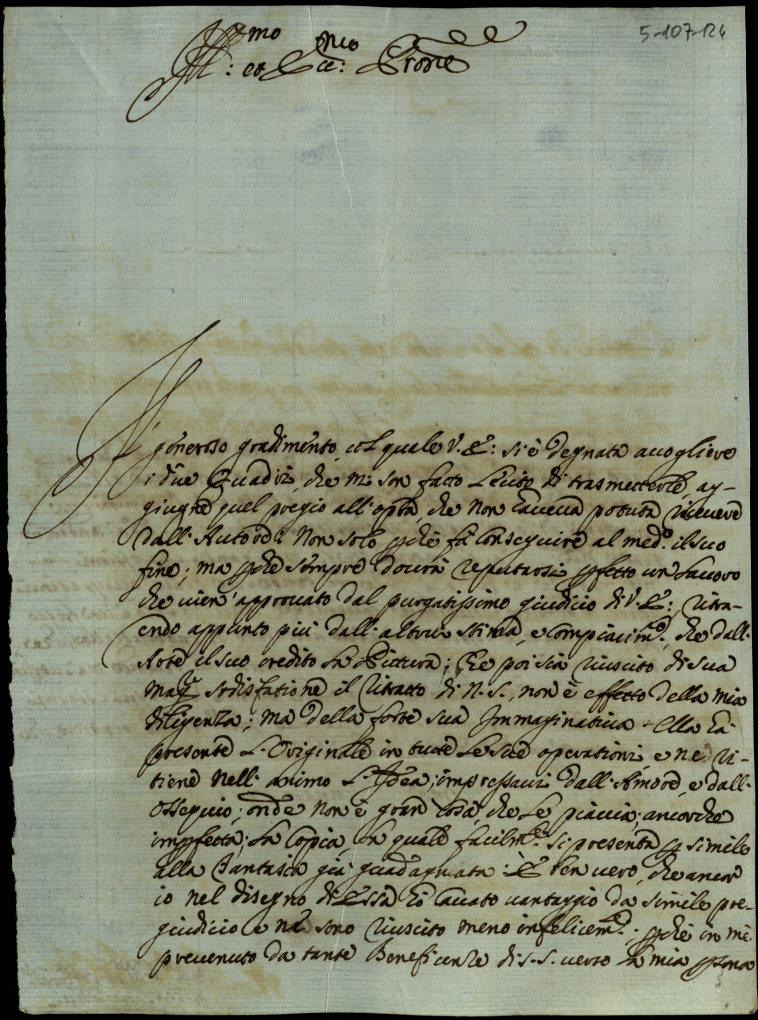 5-107-124
Ill:mo et Ecc:mo Prone
Il generoso gradimento, col quale V. E: si è degnata accogliere
i due Quadri, che mi son fatto lecito di trasmetterle, ag-
giugne quel pregio all'opra, che non haveva potuto ricevere
dall'Autore: Non solo pche fà conseguire al med.o il suo
fine; ma pche sempre dovrà reputarsi pfetto un lavoro
che vien' approvato dal purgatissimo giudicio di V. E:; ritra-
endo appunto più dall'altrui stima, e compiacim.to, che dall'
Arte il suo credito la Pittura; Che poi sia riuscito di sua
mag.r sodisfatione il ritratto di N.S., non è effetto della mia
diligenza; ma della forte sua Immaginativa. Ella hà
presente l'Originale in tutte le sue operationi, e ne ri-
tiene nell'animo l'Idea, impressavi dall'Amore, e dall'
Ossequio; onde non è gran cosa, che le piaccia, ancorche
impfetta, la Copia, la quale facilm.te si presenta p simile
alla Fantasia già guadagnata: È ben vero, che ancor
io nel disegno di Essa hò cavato vantaggio da simile pre-
giudicio e ne sono riuscito meno infelicem.te, pche in me
prevenuto da tante Beneficenze di S.S. verso la mia psona